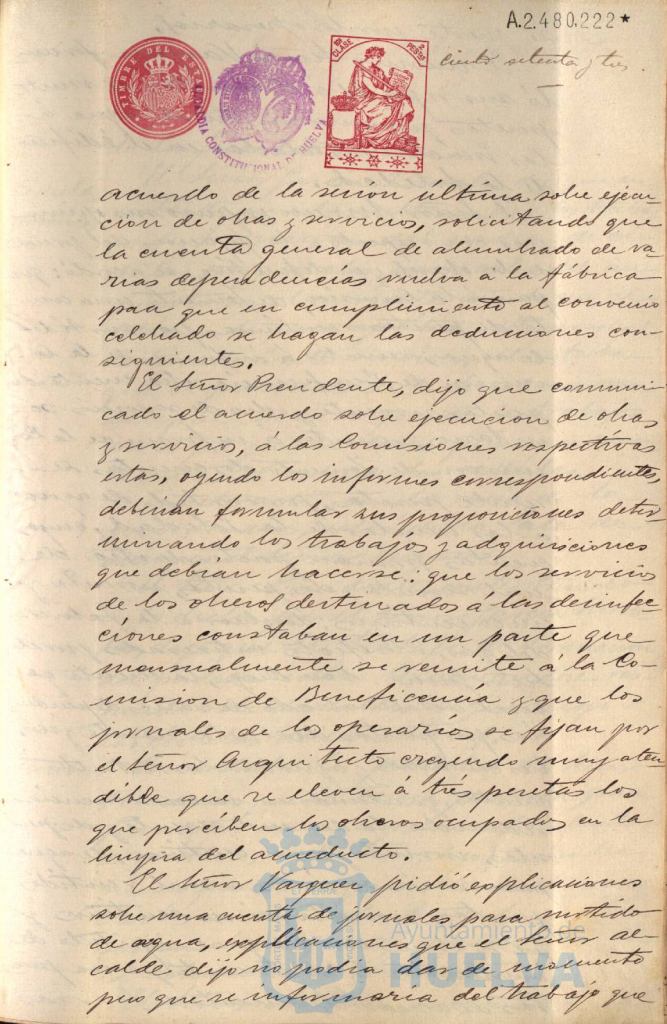 A.2.480.222*
TIMBRE DEL ESTADO
ALCALDIA CONSTITUCIONAL DE HUELVA
CLASE 2 PESETAS
ciento setenta y tres
acuerdo de la sesion última sobre ejecu-
cion de obras y servicios, solicitando que
la cuenta general de alumbrado de va-
rias dependencias vuelva á la fábrica
para que en cumplimiento al convenio
celebrado se hagan las deducciones con-
siguientes.
El Señor Presidente, dijo que comuni-
cado el acuerdo sobre ejecucion de obras
y servicios, á las Comisiones respectivas
estas, oyendo los informes correspondientes,
deberian formular sus proposiciones deter-
minando los trabajos y adquisiciones
que debian hacerse: que los servicios
de los obreros destinados á las desinfec-
ciones constaban en un parte que
mensualmente se remite á la Co-
mision de Beneficencia y que los
jornales de los operarios se fijan por
el Señor Arquitecto creyendo muy aten-
dible que se eleven á trés pesetas los
que perciben los obreros ocupados en la
limpia del acueducto.
El Señor Vazquez pidió explicaciones
sobre una cuenta de jornales para surtido
de agua, explicaciones que el Señor al-
calde dijo no podia dar de momento
pero que se informaria del trabajo que
Ayuntamiento de
HUELVA